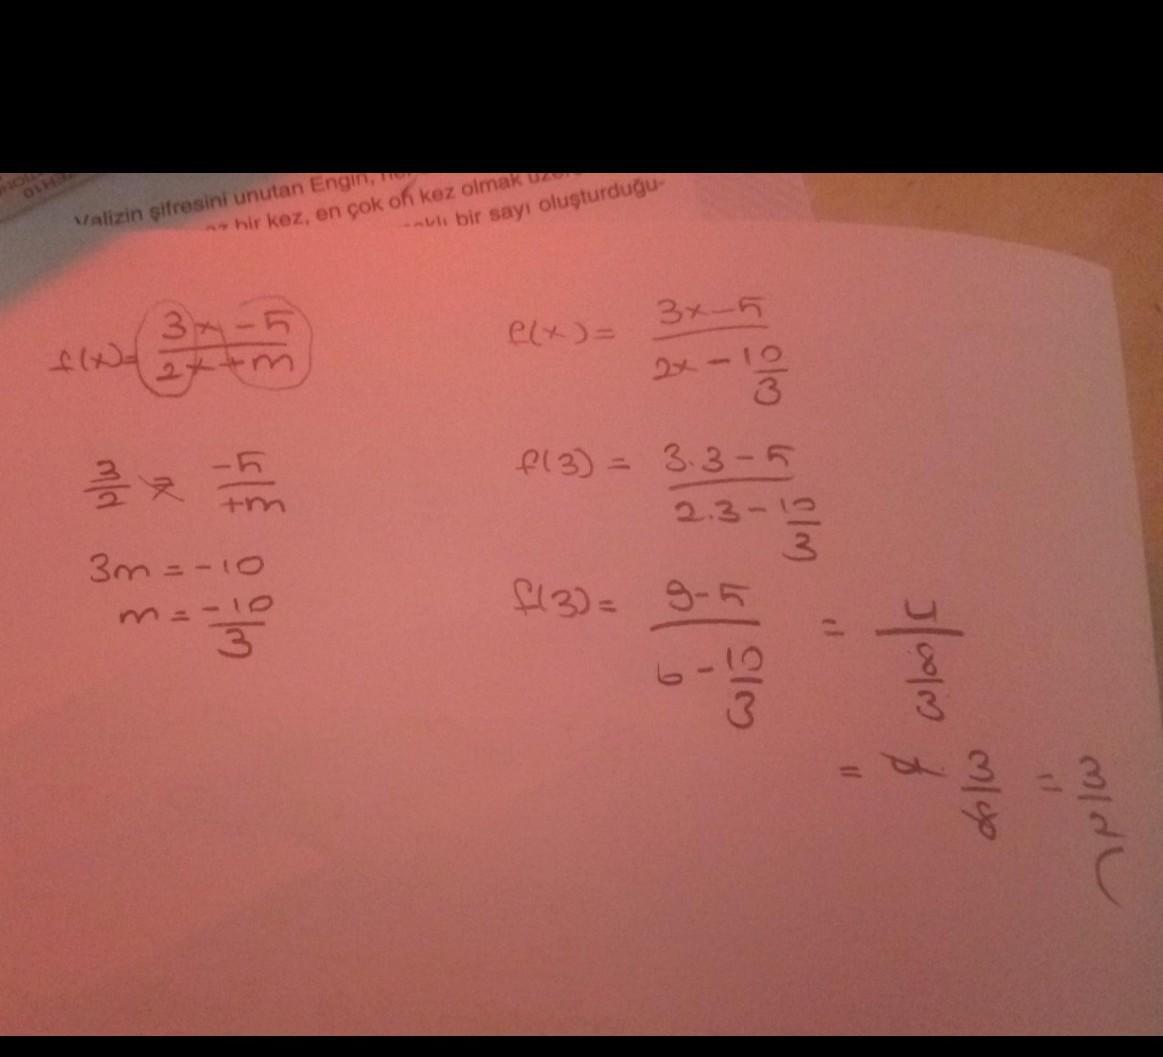 Valizin şifresini unutan Engin,
bir kez, en çok on kez olmak
bir sayı oluşturduğu-
f(x)= 3x-5 / 2x+m
3/2 = -5/+m
3m = -10
m = -10/3
f(x)= 3x-5 / 2x - 10/3
f(3) = 3.3-5 / 2.3 - 10/3
f(3) = 9-5 / 6 - 10/3 = 4 / 8/3
= 4. 3/8 = 3/2